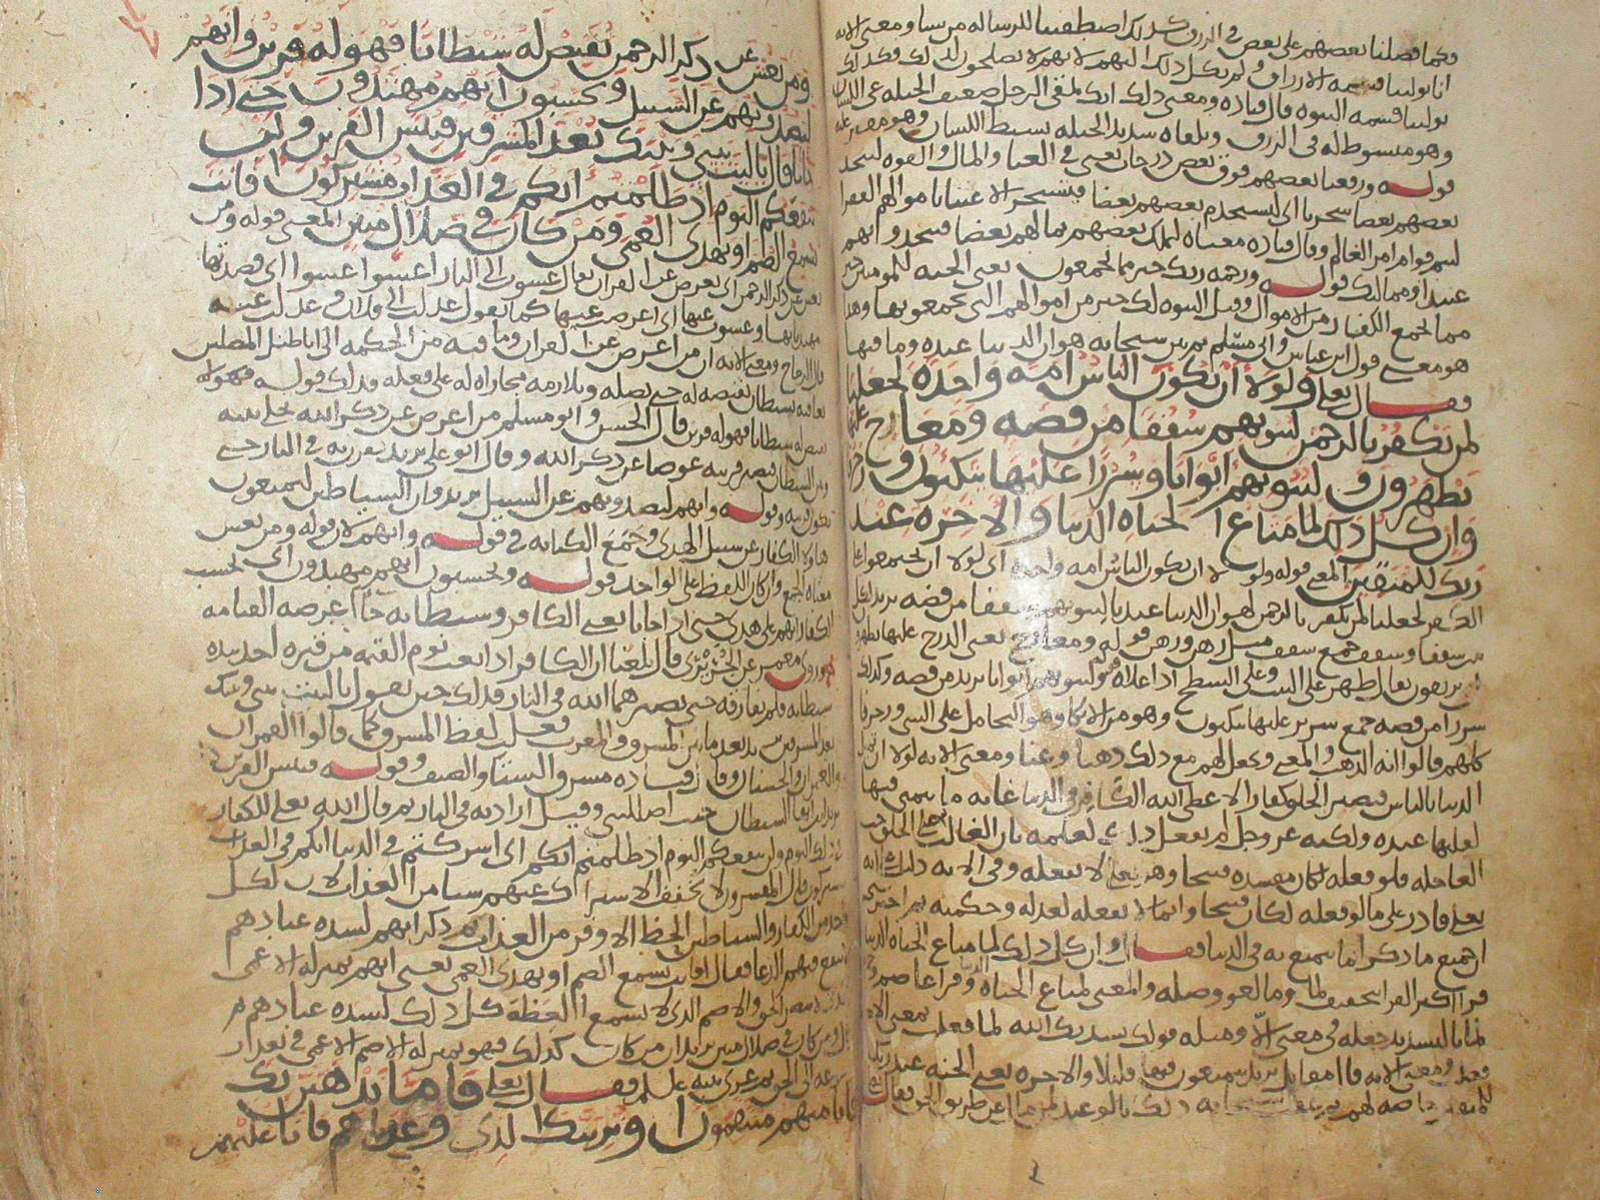 وكما فضلنا بعضهم على بعض في الرزق كذلك اصطفينا للرساله من نشا ومعنى الايه
انا تولينا قسمه الارزاق ولم نكل ذلك اليهم لانهم لا يصلحون لذلك فكذلك
تولينا قسمه النبوه قال قتاده ومعنى ذلك انك تلقى الرجل ضعيف الحيله عي اللسان
وهو مبسوط له في الرزق وتلقاه شديد الحيله بسيط اللسان وهو مقتر عليه
قوله ورفعنا بعضهم فوق بعض درجات يعني في الغنا والمال والقوه ليتخذ
بعضهم بعضا سخريا اي ليستخدم بعضهم بعضا فيسخر الاغنيا باموالهم الفقرا
ليتم قوام امر العالم وقال قتاده معناه ليملك بعضهم بمالهم بعضا فيتخذوا بهم
عبيدا ومماليك قوله ورحمه ربك خير مما يجمعون يعني الجنه للمومنين خير
مما يجمع الكفار من الاموال وقيل النبوه لك خير من اموالهم التي يجمعونها وهذا
هو معنى قول ابن عباس والي مسلم ثم بين سبحانه هوان الدنيا عنده وما فيها
فقال تعالى ولولا ان يكون الناس امه واحده لجعلنا
لمن يكفر بالرحمن لبيوتهم سقفا من فضه ومعارج عليها
يظهرون ولبيوتهم ابوابا وسررا عليها يتكون وزخرفا
وان كل ذلك لما متاع الحياه الدنيا والاخره عند
ربك للمتقين المعنى قوله ولولا ان يكون الناس امه واحده اي لولا ان يجتمعوا على
الكفر لجعلنا لمن يكفر بالرحمن لهوان الدنيا عندنا لبيوتهم سقفا من فضه
سقفا وسقف جمع سقف مثل رهن ورهن قوله ومعارج يعني الدرج عليها يظهرون
يرتقون يقال ظهر على البيت وعلى السطح اذا علاه قوله ولبيوتهم ابوابا يريد من فضه وكذلك
سررا من فضه جمع سرير عليها يتكون وهو من الاتكا وهو التحامل على الشي وزخرفا
كلهم قالوا انه الذهب والمعنى ونجعل لهم مع ذلك ذهبا وغنا ومعنى الايه لولا ان تميل
الدنيا بالناس فيصير الخلق كفارا لاعطى الله الكافر في الدنيا غايه ما يتمنى فيها
لقلتها عنده ولكنه عز وجل لم يفعل ذلك لعلمه بان الغالب على الخلق حب
العاجله فلو فعله لكان مفسده قبيحا وهو تعالى لا يفعله وفي الايه دليل انه
تعالى قادر على ما لو فعله لكان قبيحا وانما لا يفعله لعدله وحكمته ثم اخبر
ان جميع ما ذكر انما يتمتع به في الدنيا فقال وان كل ذلك لما متاع الحياه الدنيا
قرا اكثر القرا بتخفيف لما وما لغو وصله والمعنى لمتاع الحياه الدنيا وقرا عاصم وحمزه
لما بالتشديد جعله في معنى الا ومثله قولك نشدتك الله لما فعلت بمعنى الا
فعلت ومعنى الايه يريد يتمتعون فيها قليلا والاخره يعني الجنه عند ربك
للمتقين خاصه لهم
ومن يعش عن ذكر الرحمن نقيض له شيطانا فهو له قرين وانهم
ليصدونهم عن السبيل ويحسبون انهم مهتدون حتى اذا
جانا قال يا ليت بيني وبينك بعد المشرقين فبئس القرين ولن
ينفعكم اليوم اذ ظلمتم انكم في العذاب مشتركون افانت
تسمع الصم او تهدي العمي ومن كان في ضلال مبين المعنى قوله ومن
يعش عن ذكر الرحمن اي يعرض عن القران يقال عشوت الى النار اعشوا عشوا اي قصدتها
مهتديا بها وعشوت عنها اي اعرضت عنها كما يقول عدلت الى فلان وعدلت عنه
قال الزجاج ومعنى الايه ان من اعرض عن القران وما فيه من الحكمه الى اباطيل المضلين
نعاقبه بشيطان نقيضه له حتى يضله ويلازمه مجازاه له على فعله وذلك قوله
نقيض له شيطانا فهو له قرين قال الحسن وابو مسلم من اعرض عن ذكر الله نخلي بينه
وبين الشيطان فيصير قرينه عوضا عن ذكر الله وقال ابو علي يريد نقرن به في النار حتى
يكون قرينه وقوله وانهم ليصدونهم عن السبيل يريد وان الشياطين ليمنعون
هاولا الكفار عن سبيل الهدى وجمع الكنايه في قوله وانهم لان قوله ومن يعش
معناه الجمع وان كان اللفظ على الواحد قوله ويحسبون انهم مهتدون اي يحسب
الكفار انهم على هدي حتى اذا جانا يعني الكافر وشيطانه جا عرصه القيامه
وروى معمر عن الجريري قال بلغنا ان الكافر اذا بعث يوم القيمه من قبره اخذ بيده
شيطانه فلم يفارقه حتى يصيرهما الله في النار فذلك حين يقول يا ليت بيني وبينك
بعد المشرقين يريد بعد ما بين المشرق والمغرب فغلب لفظ المشرق كما قالوا القمران
والعمران والحسنان وقال قتاده مشرق الشتا والصيف وقوله فبئس القرين
يريد ايها الشيطان حيث اضللتني وقيل اراد به في النار ثم قال الله تعالى للكفار
في ذلك اليوم ولن ينفعكم اليوم اذ ظلمتم انكم اي اشركتم في الدنيا انكم في العذاب
مشتركون قال المفسرون لا يخفف الاشتراك عنهم شيا من العذاب لان لكل
واحد من الكفار والشياطين الحظ الاوفر من العذاب ثم ذكر انهم لشده عنادهم
لا ينفع فيهم الدعا فقال افانت تسمع الصم او تهدي العمي يعني انهم بمنزله الاعمى
الذي لا يبصر الحق والاصم الذي لا يسمع العظه كل ذلك لشده عنادهم
قال ومن كان في ضلال مبين يريد ان من كان كذلك فهو بمنزله الاصم الاعمى في تعذر
فقال تعالى فاما نذهبن بك
فانا منهم منتقمون او نرينك الذي وعدناهم فانا عليهم